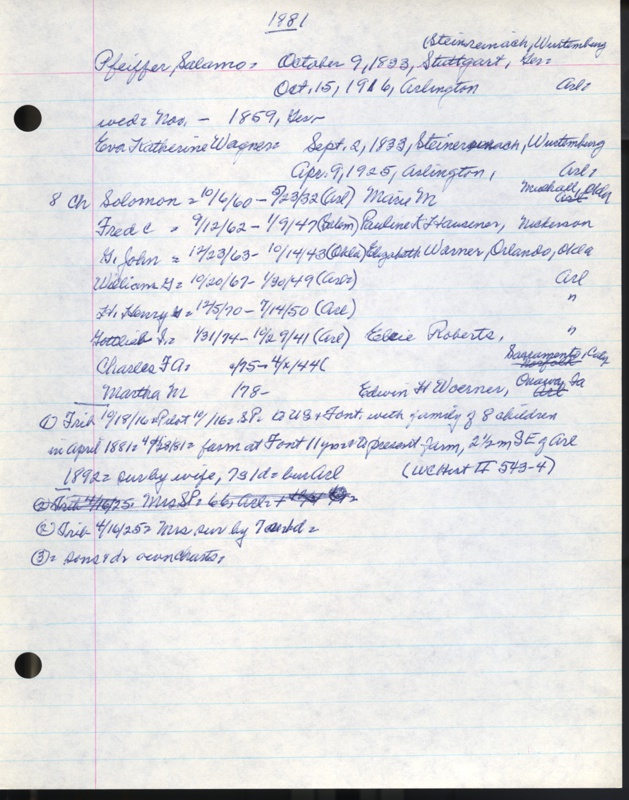 1981
Steinreinach, Wurtemburg
Pfeiffer, Salamo= October 9, 1833, Stuttgart, Ger=
Oct. 15, 1916, Arlington Arl=
wed= Nov. - 1859, Ger-
Eva Katherine Wagner= Sept. 2, 1833, Steinerenach, Wurtemburg
Apr. 9, 1925, Arlington, Arl=
8 Ch Solomon = 10/6/60 - 5/23/32 (Arl) Mary M Michall, Okla
Fred C = 9/12/62 - 1/9/47 (Salem) Pauline K F Hausener, Nickerson
G. John = 12/23/63 - 10/14/43 (Okla) Elizabeth Warner, Orlando, Okla
William G= 10/20/67 - 1/30/49 (Arl=) Arl
H. Henry = 12/5/70 - 7/14/50 (Arl) "
Gottlieb S.= 1/31/74 - 10/29/41 (Arl) Elsie Roberts, "
Charles F A= /75 - 4/x/44( Sacramento, Caly
Martha M 178- Edwin H Woerner, Onaway, Ia
① Trib 10/19/16= Pilot 10/16= SP= to US + Font. with family of 8 children
in April 1881= 4/28/81= farm at Font 11 yrs= to present farm, 2½ m SE of Arl
1892= surby wife, 7s 1d= bur Arl (WCHist II 543-4)
② Trib 4/16/25= Mrs SP= 66, Arl= +
② Trib 4/16/25= Mrs. sur by 7 s= 1d=
③= sons + d= own charts,